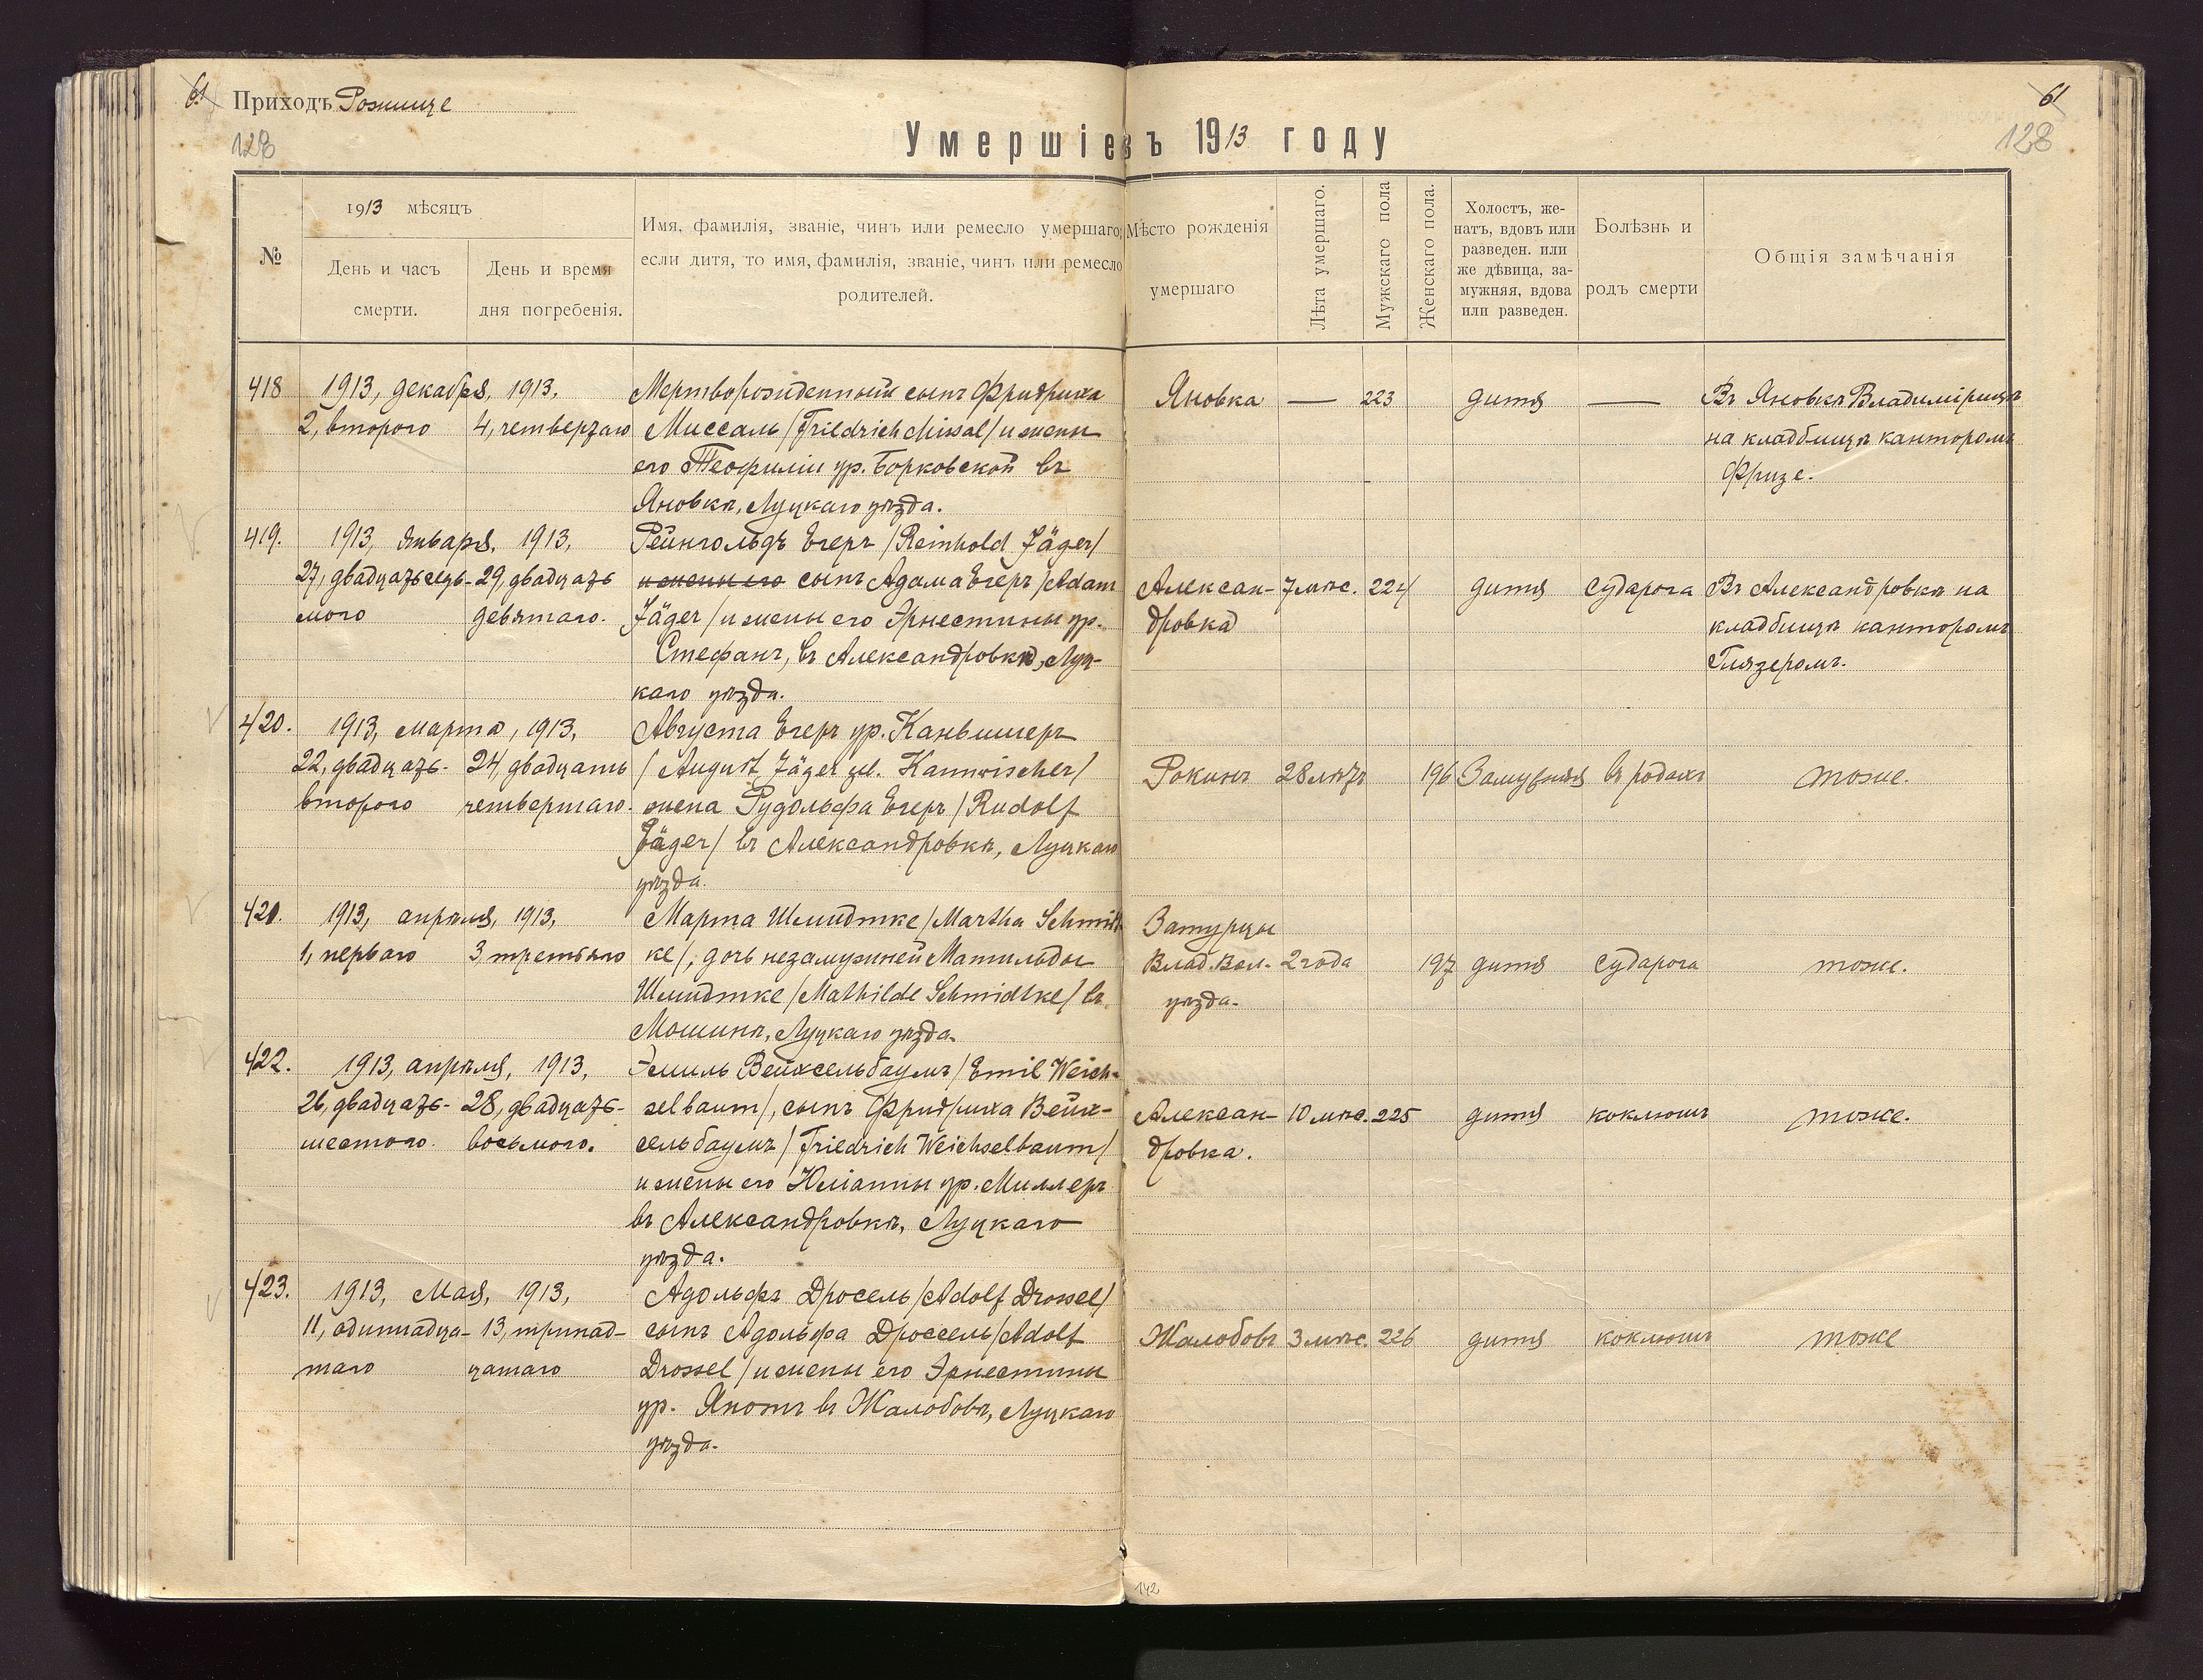 61 Приходъ Рожище
128
61
128
Умершіе въ 1913 году
№
1913 мѣсяцъ
День и часъ смерти.
День и время дня погребенія.
Имя, фамилія, званіе, чинъ или ремесло умершаго;
если дитя, то имя, фамилія, званіе, чинъ или ремесло
родителей.
Мѣсто рожденія
умершаго
Лѣта умершаго.
Мужскаго пола
Женскаго пола.
Холостъ, же-
натъ, вдовъ или
разведен. или
же дѣвица, за-
мужняя, вдова
или разведен.
Болѣзнь и
родъ смерти
Общія замѣчанія
418 1913, декабря, 1913. Мертворожденный сынъ Фридриха Яновка — 223 дитя — Въ Яновкѣ
2, второго 4, четвертаго Миссаль /Friedrich Missal/ и жены на кладбищѣ канторомъ
его Теофиліи ур. Борковской въ Фризе.
Яновкѣ, Луцкаго уѣзда.
419. 1913, января, 1913, Рейнгольдъ Егеръ /Reinhold Jäger/
27, двадцать седь- 29, двадцать и жены его сынъ Адама Егеръ /Adam Алексан- 7 мѣс. 224 дитя судорога Въ Александровкѣ на
мого девятаго. Jäger/ и жены его Эрнестины ур. дровка кладбищѣ канторомъ
Стефанъ, въ Александровкѣ, Луц- Глязеромъ.
каго уѣзда.
420. 1913, марта, 1913, Августа Егеръ ур. Каньвишеръ
22, двадцать- 24, двадцать /August Jäger gb. Kannwischer/ Рокинъ 28 лѣтъ 196 Замужняя въ родахъ тоже.
второго четвертаго. жена Рудольфа Егеръ /Rudolf
Jäger/ въ Александровкѣ, Луцкаго
уѣзда.
421. 1913, апрѣля, 1913, Марта Шмидтке /Martha Schmidt Затурцы
1, перваго 3, третьяго ке/, дочь незамужней Матильды Влад. Вол. 2 года 197 дитя судорога тоже.
Шмидтке /Mathilde Schmidtke/ въ уѣзда.
Мошинѣ, Луцкаго уѣзда.
422. 1913, апрѣля, 1913, Эмиль Вейхсельбаумъ /Emil Weich-
26, двадцать- 28, двадцать- selbaum/, сынъ Фридриха Вейх- Алексан- 10 мѣс. 225 дитя коклюшъ тоже.
шестого восьмого. сельбаумъ /Friedrich Weichselbaum/ дровка.
и жены его Юліанны ур. Миллеръ
въ Александровкѣ, Луцкаго
уѣзда.
423. 1913, Мая, 1913, Адольфъ Дросель /Adolf Drossel/
11, одиннадца- 13, тринад- сынъ Адольфа Дроссель /Adolf Жалобовъ 3 мѣс. 226 дитя коклюшъ тоже
таго цатаго Drossel/ и жены его Эрнестины
ур. Янотъ въ Жалобовѣ, Луцкаго
уѣзда.
142